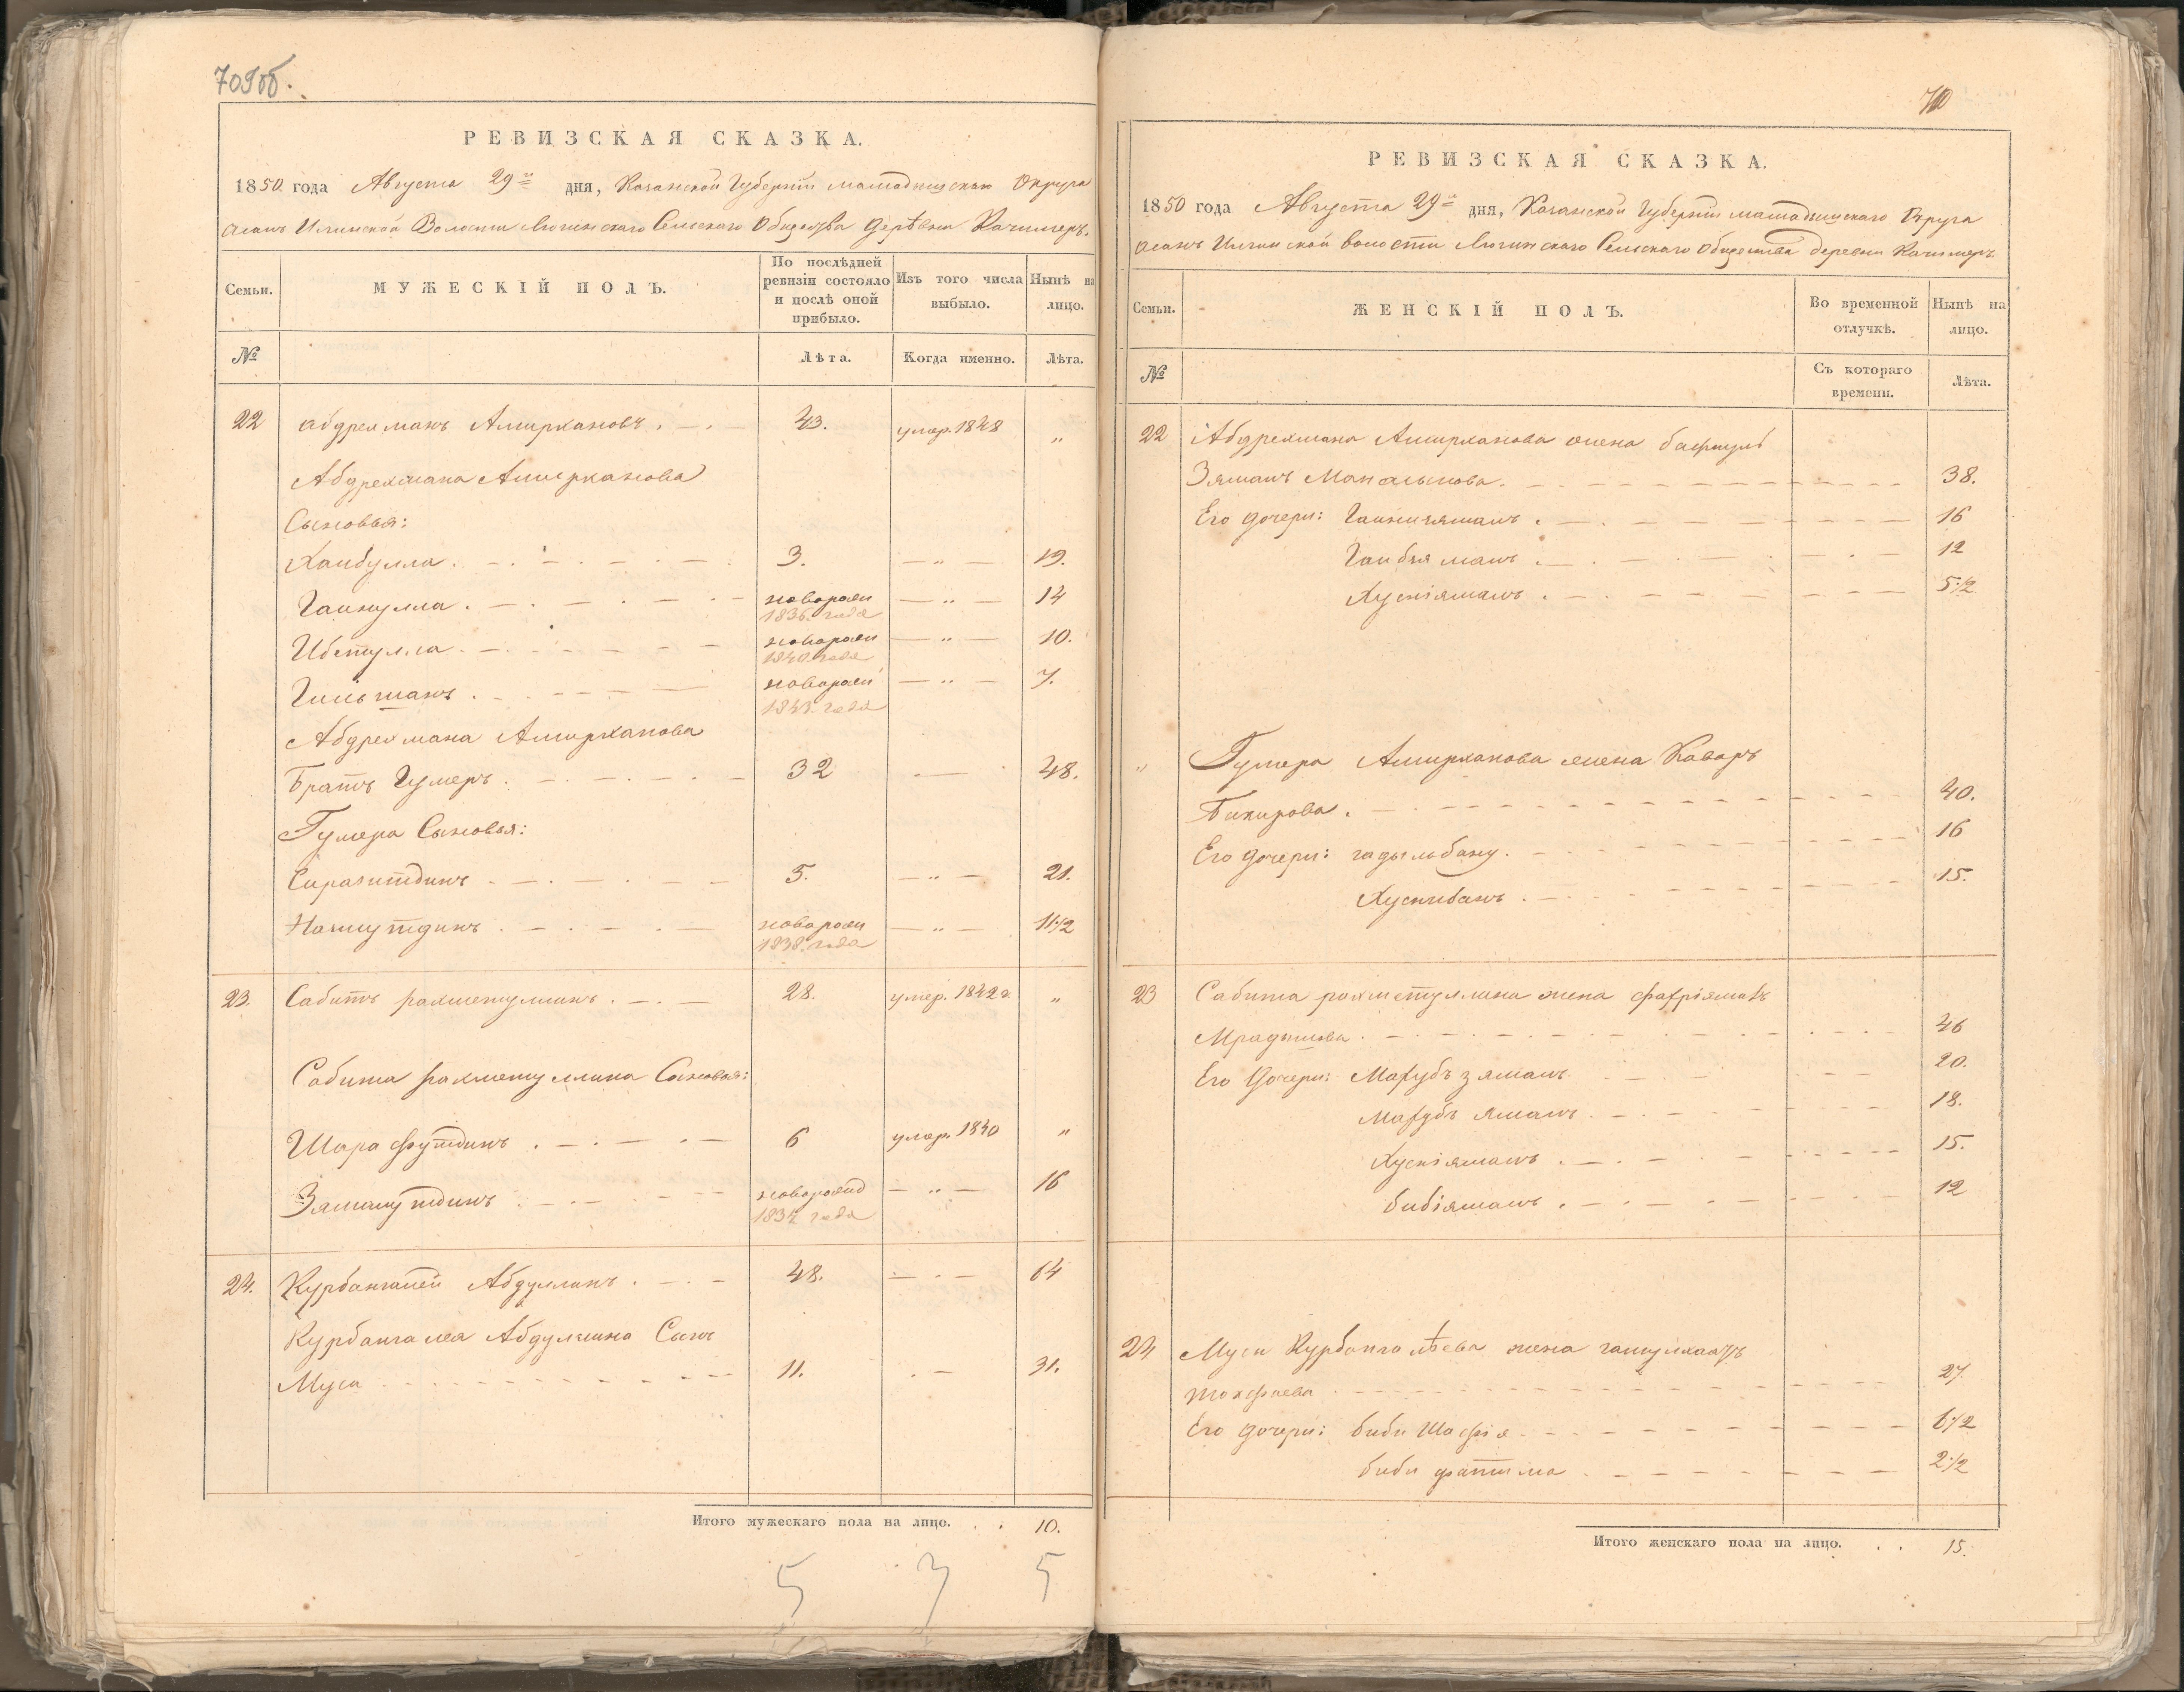 709об.
РЕВИЗСКАЯ СКАЗКА.
1850 года Августа 29го дня, Казанской Губерніи Мамадышскаго Округа
Асанъ Илгинской Волости Сельскаго Общества деревни Качимеръ.
Семьи.
МУЖЕСКІЙ ПОЛЪ.
По послѣдней ревизіи состояло и послѣ оной прибыло.
Изъ того числа выбыло.
Нынѣ на лицо.
№
Лѣта.
Когда именно.
Лѣта.
22 Абдрехманъ Амирхановъ . 43. умер. 1848 „
Абдрехмана Амирханова
Сыновья:
Хаибулла . 3. — „ — 19.
Гайнулла . новорож — „ — 14
1836. года
Ибетулла . новорож — „ — 10.
1840 года
Гильманъ . новорож — „ — 7.
1843. года
Абдрехмана Амирханова
Братъ Гумеръ . 32 — 48.
Гумера Сыновья:
Сиразитдинъ . 5. — „ — 21.
Нажмутдинъ . новорож — „ — 11½
1838. года
23. Сабитъ рахметуллинъ . 28. умер. 1842 г „
Сабита рахметуллина Сыновья:
Шарафутдинъ . 6 умер. 1840 „
Замалутдинъ новорожд — „ — 16
1834 года
24. Курбангалей Абдуллинъ . 48. — 64
Курбангалея Абдуллина Сынъ
Муса 11. — 31.
Итого мужескаго пола на лицо. . . 10.
5 3 5
710
РЕВИЗСКАЯ СКАЗКА.
1850 года Августа 29го дня, Казанской Губерніи Мамадышскаго Округа
Асанъ Илгинской волости Сельскаго Общества деревни Качимеръ
Семьи.
ЖЕНСКІЙ ПОЛЪ.
Во временной отлучкѣ.
Нынѣ на лицо.
№
Съ котораго времени.
Лѣта.
22 Абдрехмана Амирханова жена
Зяманъ . 38.
Его дочери: Гайнизяманъ . 16
12
Хуснізямалъ . 5½
„ Гумера Амирханова жена Каваръ
Бикирова . 40.
Его дочери: гадыльбану . 16
Хуснибанъ . 15.
23 Сабита рахметуллина жена фахріямалъ
46
Его Дочери: Махубъ зямалъ 20.
Махубъ ямалъ . 18.
Хусніямалъ . 15.
бибіямалъ . 12
24 Мусы Курбангалѣева жена
27
Его дочери: биби Шафія 6½
биби фатима 2½
Итого женскаго пола на лицо. . . 15.